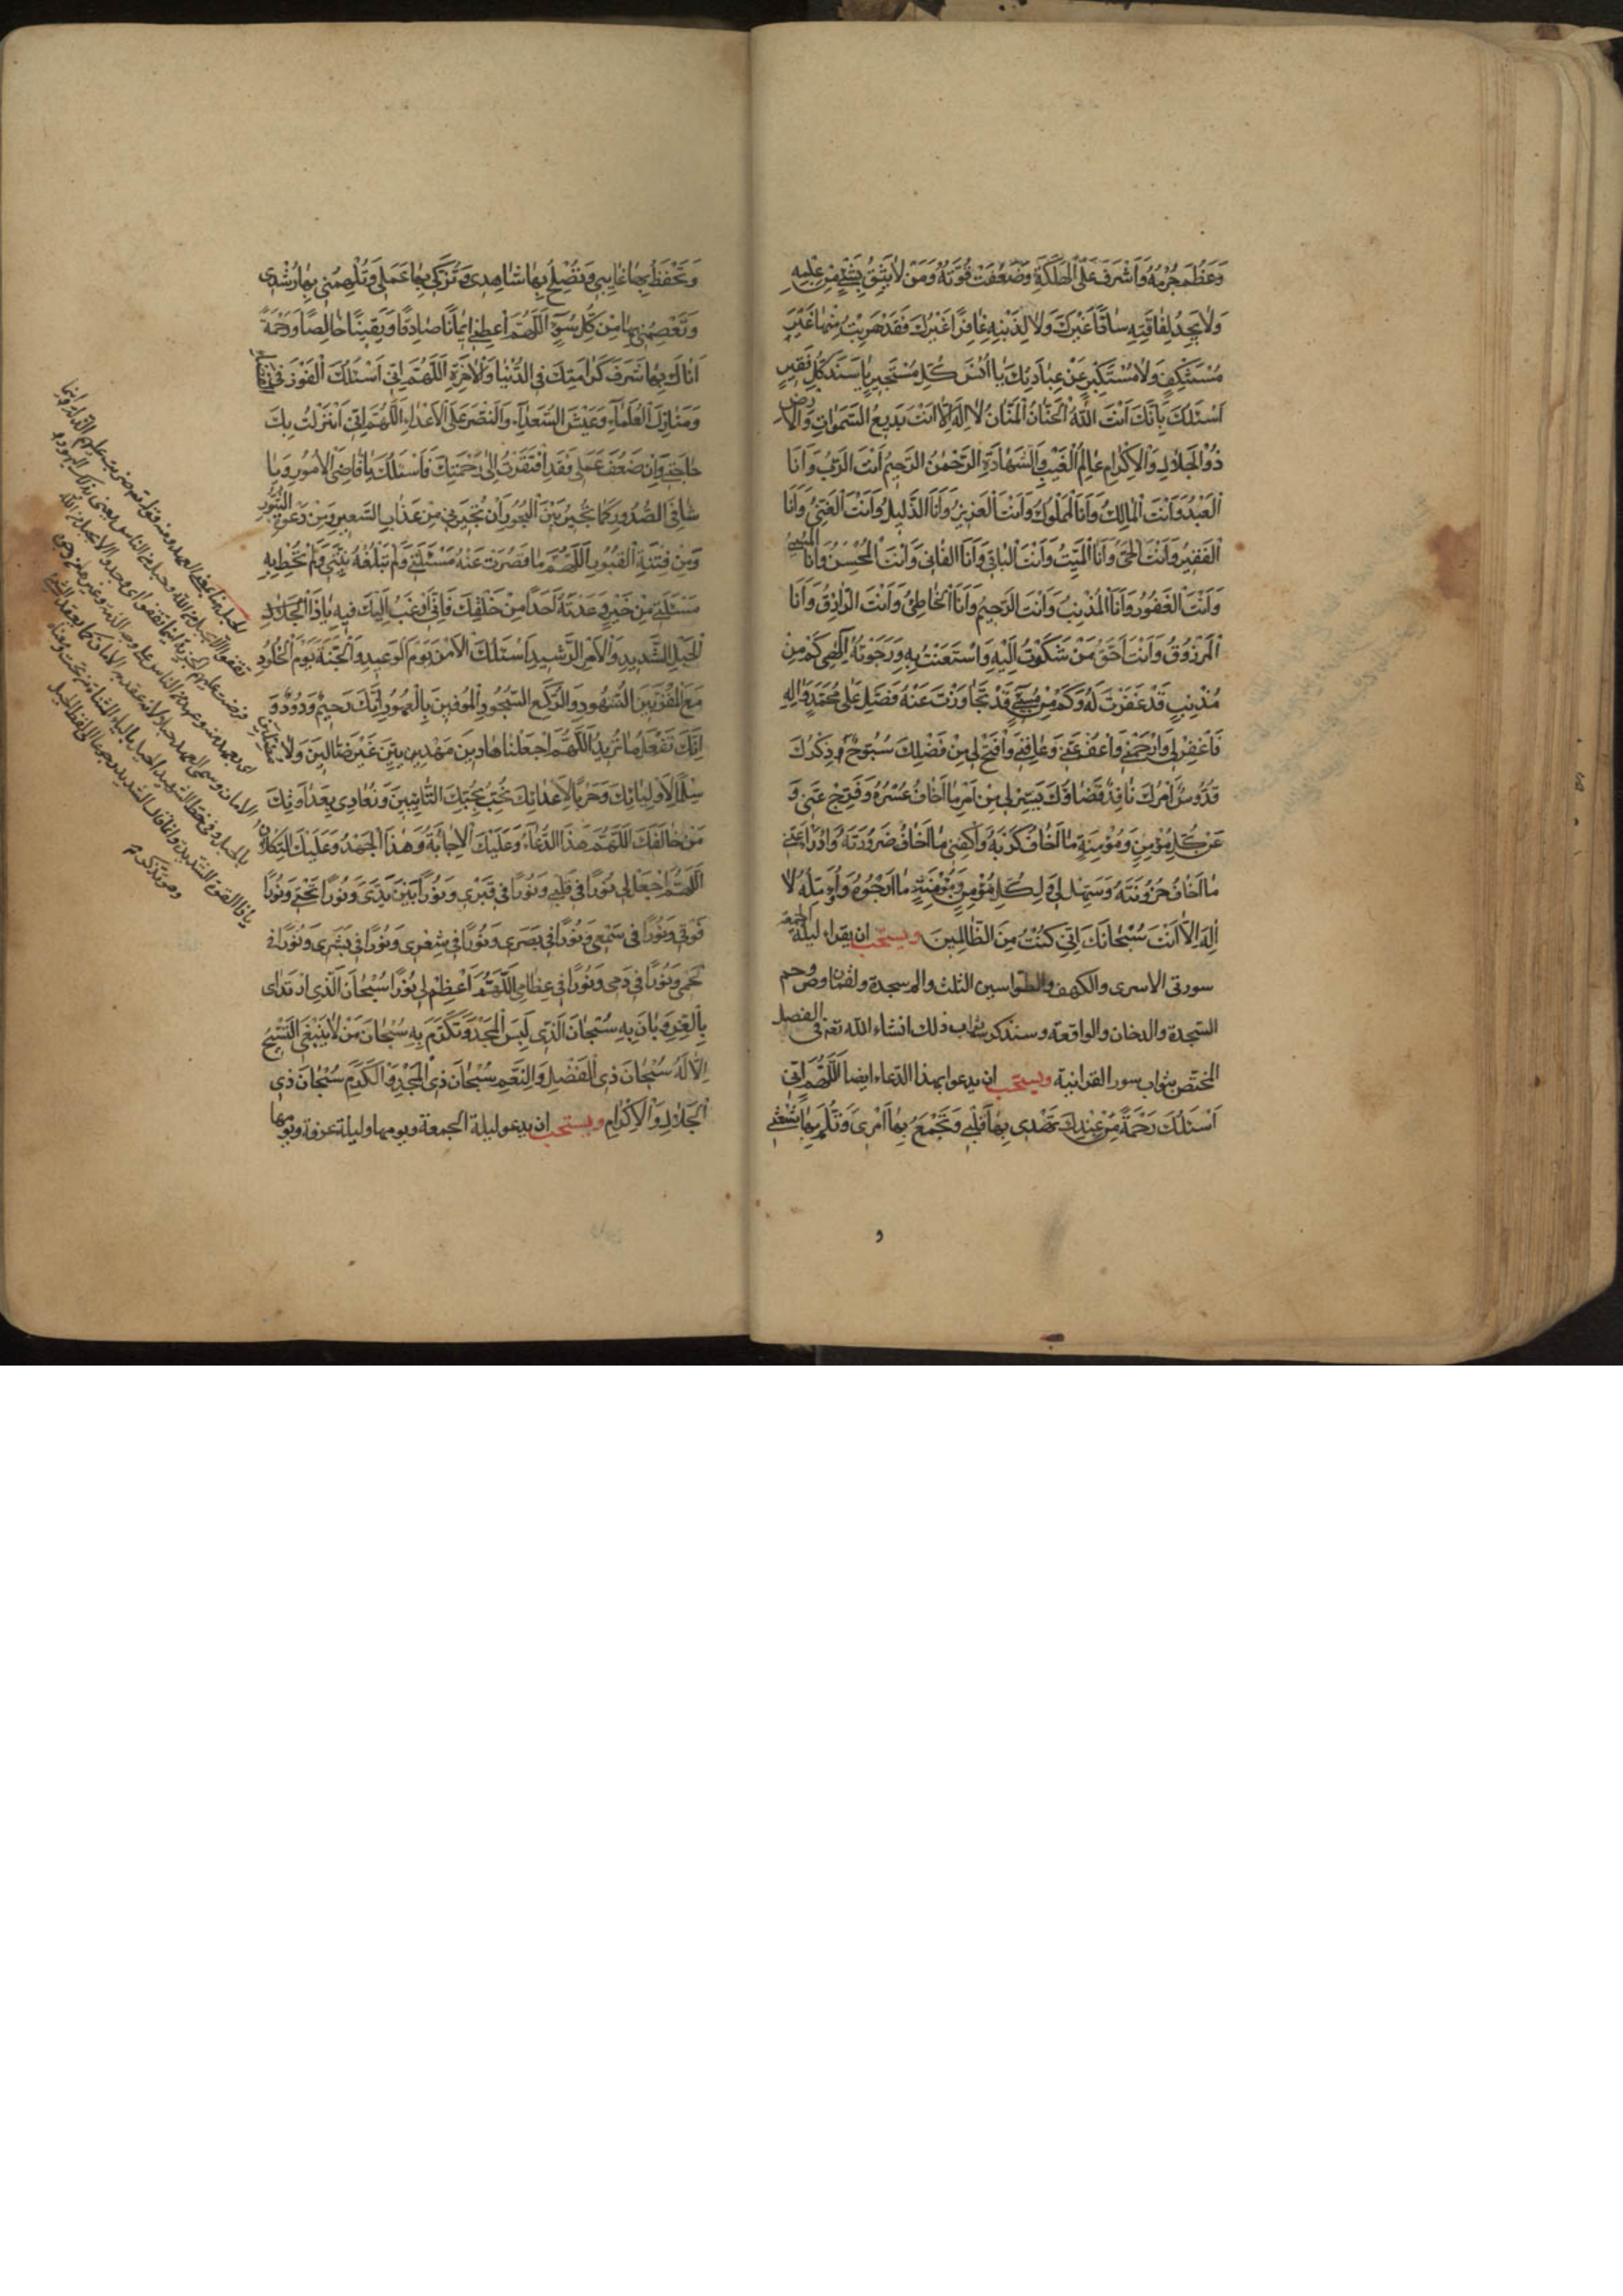 وَعَظُمَ جُرْمُهُ وَاَشْرَفَ عَلَى الْهَلَكَةِ وَضَعُفَتْ قُوَّتُهُ وَمَنْ لَا يَثِقُ بِشَيْءٍ مِنْ عَمَلِهِ
وَلَا يَجِدُ لِفَاقَتِهِ سَادًّا غَيْرَكَ وَلَا لِذَنْبِهِ غَافِرًا غَيْرَكَ فَقَدْ هَرَبْتُ مِنْهَا غَيْرَ
مُسْتَنْكِفٍ وَلَا مُسْتَكْبِرٍ عَنْ عِبَادَتِكَ يَا اُنْسَ كُلِّ مُسْتَجِيرٍ يَا سَنَدَ كُلِّ فَقِيرٍ
اَسْئَلُكَ بِاَنَّكَ اَنْتَ اللّٰهُ الْحَنَّانُ الْمَنَّانُ لَا اِلٰهَ اِلَّا اَنْتَ بَدِيعُ السَّمٰوَاتِ وَالْاَرْضِ
ذُو الْجَلَالِ وَالْاِكْرَامِ عَالِمُ الْغَيْبِ وَالشَّهَادَةِ الرَّحْمٰنُ الرَّحِيمُ اَنْتَ الرَّبُّ وَاَنَا
الْعَبْدُ وَاَنْتَ الْمَالِكُ وَاَنَا الْمَمْلُوكُ وَاَنْتَ الْعَزِيزُ وَاَنَا الذَّلِيلُ وَاَنْتَ الْغَنِيُّ وَاَنَا
الْفَقِيرُ وَاَنْتَ الْحَيُّ وَاَنَا الْمَيِّتُ وَاَنْتَ الْبَاقِي وَاَنَا الْفَانِي وَاَنْتَ الْمُحْسِنُ وَاَنَا الْمُسِيءُ
وَاَنْتَ الْغَفُورُ وَاَنَا الْمُذْنِبُ وَاَنْتَ الرَّحِيمُ وَاَنَا الْخَاطِئُ وَاَنْتَ الرَّازِقُ وَاَنَا
الْمَرْزُوقُ وَاَنْتَ اَحَقُّ مَنْ شَكَوْتُ اِلَيْهِ وَاسْتَعَنْتُ بِهِ وَرَجَوْتُهُ اِلٰهِي كَمْ مِنْ
مُذْنِبٍ قَدْ غَفَرْتَ لَهُ وَكَمْ مِنْ مُسِيءٍ قَدْ تَجَاوَزْتَ عَنْهُ فَصَلِّ عَلٰى مُحَمَّدٍ وَاٰلِهِ
فَاغْفِرْ لِي وَارْحَمْنِي وَاعْفُ عَنِّي وَعَافِنِي وَافْتَحْ لِي مِنْ فَضْلِكَ سُبُّوحٌ ذِكْرُكَ
قُدُّوسٌ اَمْرُكَ نَافِذٌ قَضَاؤُكَ يَسِّرْ لِي مِنْ اَمْرِي مَا اَخَافُ عُسْرَهُ وَفَرِّجْ عَنِّي وَ
عَنْ كُلِّ مُؤْمِنٍ وَمُؤْمِنَةٍ مَا اَخَافُ كَرْبَهُ وَاكْفِنِي مَا اَخَافُ ضَرُورَتَهُ وَادْرَأْ عَنِّي
مَا اَخَافُ حُزُونَتَهُ وَسَهِّلْ لِي وَلِكُلِّ مُؤْمِنٍ وَمُؤْمِنَةٍ مَا اَرْجُوهُ وَاُؤَمِّلُهُ لَا
اِلٰهَ اِلَّا اَنْتَ سُبْحَانَكَ اِنِّي كُنْتُ مِنَ الظَّالِمِينَ ويستحب ان يقراء ليلة الجمعة
سورتى الاسرى والكهف والطواسين الثلث والم سجدة ولقمان وص وحم
السجدة والدخان والواقعة وسنذكر ثواب ذلك انشاء الله تعم فى الفصل
المختص بثواب سور القرانية ويستحب ان يدعو بهذا الدعاء ايضا اَللّٰهُمَّ اِنِّي
اَسْئَلُكَ رَحْمَةً مِنْ عِنْدِكَ تَهْدِي بِهَا قَلْبِي وَتَجْمَعُ بِهَا اَمْرِي وَتَلُمُّ بِهَا شَعْثِي
و
وَتَحْفَظُ بِهَا غَايِبِي وَتُصْلِحُ بِهَا شَاهِدِي وَتُزَكِّي بِهَا عَمَلِي وَتُلْهِمُنِي بِهَا رُشْدِي
وَتَعْصِمُنِي بِهَا مِنْ كُلِّ سُوءٍ اَللّٰهُمَّ اَعْطِنِي اِيمَانًا صَادِقًا وَيَقِينًا خَالِصًا وَرَحْمَةً
اَنَالُ بِهَا شَرَفَ كَرَامَتِكَ فِي الدُّنْيَا وَالْاٰخِرَةِ اَللّٰهُمَّ اِنِّي اَسْئَلُكَ الْفَوْزَ فِي
وَمَنَازِلَ الْعُلَمَاءِ وَعَيْشَ السُّعَدَاءِ وَالنَّصْرَ عَلَى الْاَعْدَاءِ اَللّٰهُمَّ اِنِّي اَنْزَلْتُ بِكَ
حَاجَتِي وَاِنْ ضَعُفَ عَمَلِي فَقَدِ افْتَقَرْتُ اِلٰى رَحْمَتِكَ فَاَسْئَلُكَ يَا قَاضِيَ الْاُمُورِ وَيَا
شَافِيَ الصُّدُورِ كَمَا تُجِيرُ بَيْنَ الْبُحُورِ اَنْ تُجِيرَنِي مِنْ عَذَابِ السَّعِيرِ وَمِنْ دَعْوَةِ الثُّبُورِ
وَمِنْ فِتْنَةِ الْقُبُورِ اَللّٰهُمَّ مَا قَصُرَتْ عَنْهُ مَسْئَلَتِي وَلَمْ تَبْلُغْهُ نِيَّتِي وَلَمْ تُحِطْ بِهِ
مَسْئَلَتِي مِنْ خَيْرٍ وَعَدْتَهُ اَحَدًا مِنْ خَلْقِكَ فَاِنِّي اَرْغَبُ اِلَيْكَ فِيهِ يَا ذَا
الْحَبْلِ الشَّدِيدِ وَالْاَمْرِ الرَّشِيدِ اَسْئَلُكَ الْاَمْنَ يَوْمَ الْوَعِيدِ وَالْجَنَّةَ يَوْمَ الْخُلُودِ
مَعَ الْمُقَرَّبِينَ الشُّهُودِ وَالرُّكَّعِ السُّجُودِ الْمُوفِينَ بِالْعُهُودِ اِنَّكَ رَحِيمٌ وَدُودٌ وَ
اِنَّكَ تَفْعَلُ مَا تُرِيدُ اَللّٰهُمَّ اجْعَلْنَا هَادِينَ مَهْدِيِّينَ غَيْرَ ضَالِّينَ وَلَا مُضِلِّينَ
سِلْمًا لِاَوْلِيَائِكَ وَحَرْبًا لِاَعْدَائِكَ نُحِبُّ بِحُبِّكَ التَّائِبِينَ وَنُعَادِي بِعَدَاوَتِكَ
مَنْ خَالَفَكَ اَللّٰهُمَّ هٰذَا الدُّعَاءُ وَعَلَيْكَ الْاِجَابَةُ وَهٰذَا الْجَهْدُ وَعَلَيْكَ التُّكْلَانُ
اَللّٰهُمَّ اجْعَلْ لِي نُورًا فِي قَلْبِي وَنُورًا فِي قَبْرِي وَنُورًا بَيْنَ يَدَيَّ وَنُورًا تَحْتِي وَنُورًا
فَوْقِي وَنُورًا فِي سَمْعِي وَنُورًا فِي بَصَرِي وَنُورًا فِي شَعْرِي وَنُورًا فِي بَشَرِي وَنُورًا فِي
لَحْمِي وَنُورًا فِي دَمِي وَنُورًا فِي عِظَامِي اَللّٰهُمَّ اَعْظِمْ لِي نُورًا سُبْحَانَ الَّذِي ارْتَدٰى
بِالْعِزِّ وَبَانَ بِهِ سُبْحَانَ الَّذِي لَبِسَ الْمَجْدَ وَتَكَرَّمَ بِهِ سُبْحَانَ مَنْ لَا يَنْبَغِي التَّسْبِيحُ
اِلَّا لَهُ سُبْحَانَ ذِي الْفَضْلِ وَالنِّعَمِ سُبْحَانَ ذِي الْمَجْدِ وَالْكَرَمِ سُبْحَانَ ذِي
الْجَلَالِ وَالْاِكْرَامِ ويستحب ان يدعو ليلة الجمعة ويومها وليلة عرفة ويومها
الحبل هنا بمعنى العهد ومنه قوله تعم ضربت عليهم الذلة اينما
ثقفوا الا بحبل من الله وحبل من الناس